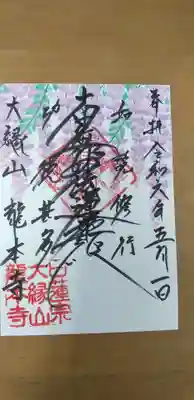 奉拝 令和六年五月一日
如説修行
南無妙法蓮華経
功徳甚多
大縁山 龍本寺
日蓮宗
大縁山
龍本寺